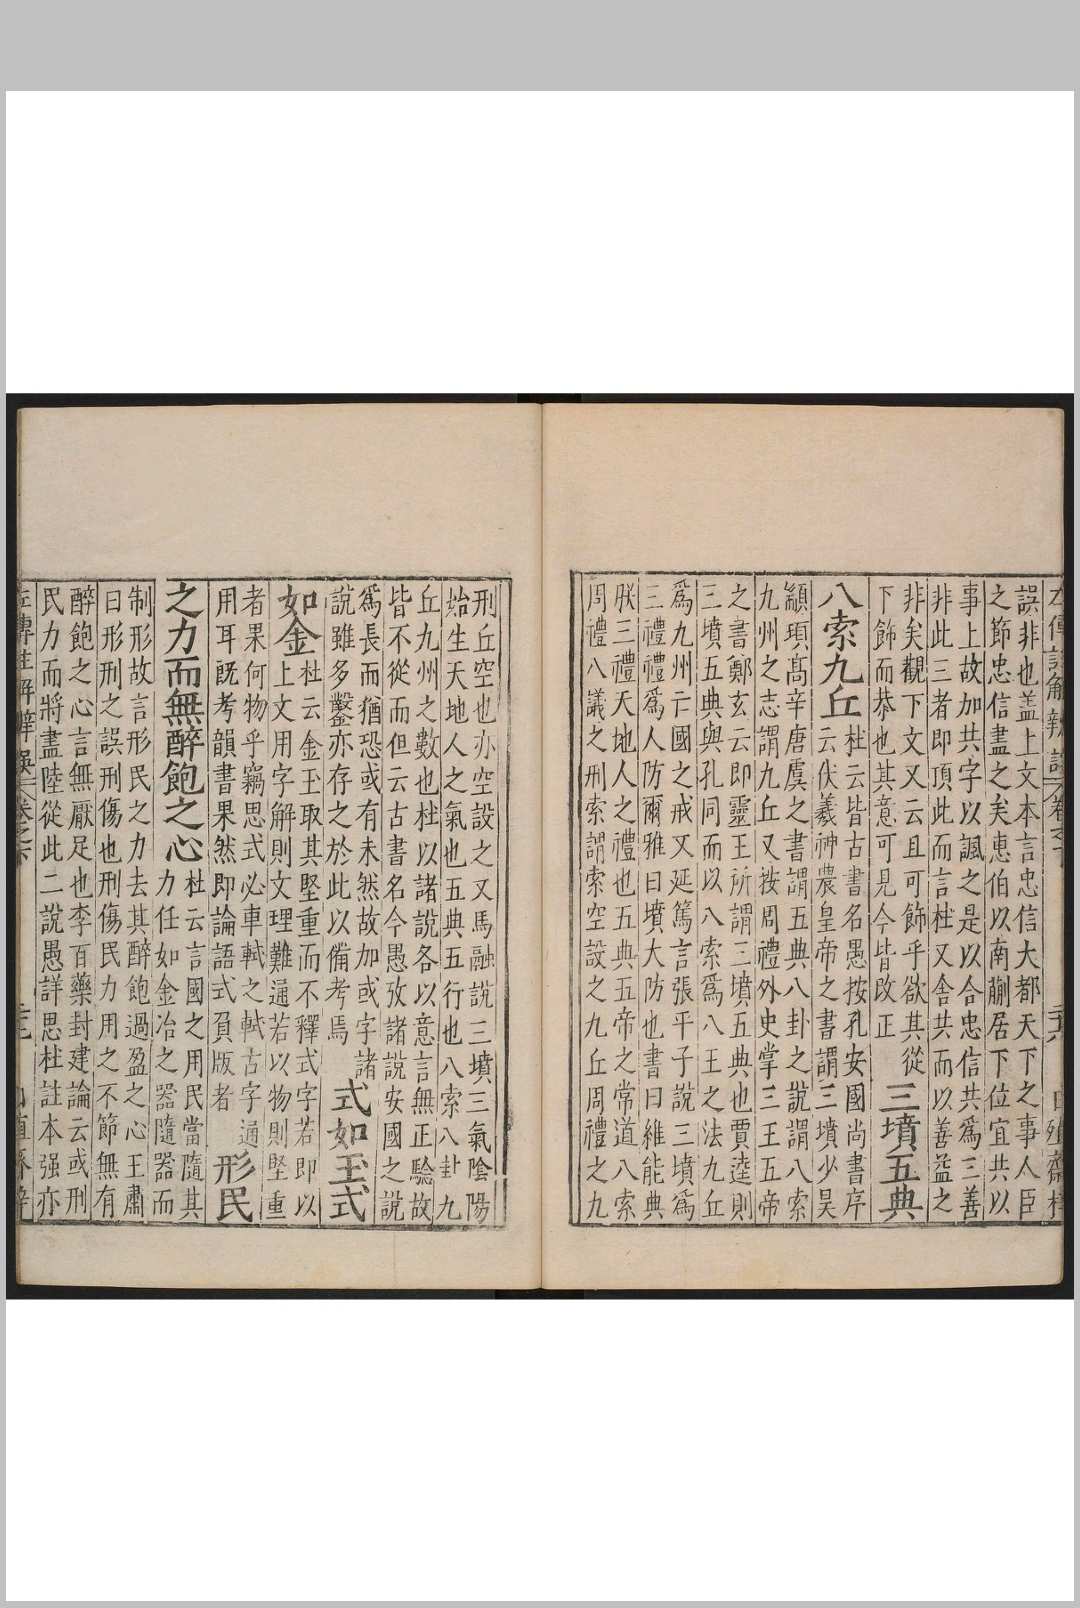 左傳註解辨誤 卷之下 二十六 日殖齋梓
誤非也盖上文本言忠信大都天下之事人臣
之節忠信盡之矣惠伯以南蒯居下位宜共以
事上故加共字以諷之是以合忠信共爲三善
非此三者即頂此而言杜又舍共而以善益之
非矣觀下文又云且可飾乎欲其從
下飾而恭也其意可見今皆改正
三墳五典
八索九丘
杜云皆古書名愚按孔安國尚書序
云伏羲神農皇帝之書謂三墳少昊
顓頊髙辛唐虞之書謂五典八卦之說謂八索
九州之志謂九丘又按周禮外史掌三王五帝
之書鄭玄云即靈王所謂三墳五典也賈逵則
三墳五典與孔同而以八索爲八王之法九丘
爲九州亡國之戒又延篤言張平子說三墳爲
三禮禮爲人防爾雅曰墳大防也書曰維能典
朕三禮天地人之禮也五典五帝之常道八索
周禮八議之刑索謂索空設之九丘周禮之九
刑丘空也亦空設之又馬融說三墳三氣陰陽
始生天地人之氣也五典五行也八索八卦九
丘九州之數也杜以諸說各以意言無正驗故
皆不從而但云古書名今愚攷諸說安國之說
爲長而猶恐或有未然故加或字諸
說雖多鑿亦存之於此以備考焉
式如玉式
如金
杜云金玉取其堅重而不釋式字若即以
上文用字解則文理難通若以物則堅重
者果何物乎竊思式必車軾之軾古字通
用耳旣考韻書果然即論語式負版者
形民
之力而無醉飽之心
杜云言國之用民當隨其
力任如金冶之器隨器而
制形故言形民之力去其醉飽過盈之心王肅
曰形刑之誤刑傷也刑傷民力用之不節無有
醉飽之心言無厭足也李百藥封建論云或刑
民力而將盡陸從此二說愚詳思杜註本强亦
左傳註解辨誤 卷之下 二十七